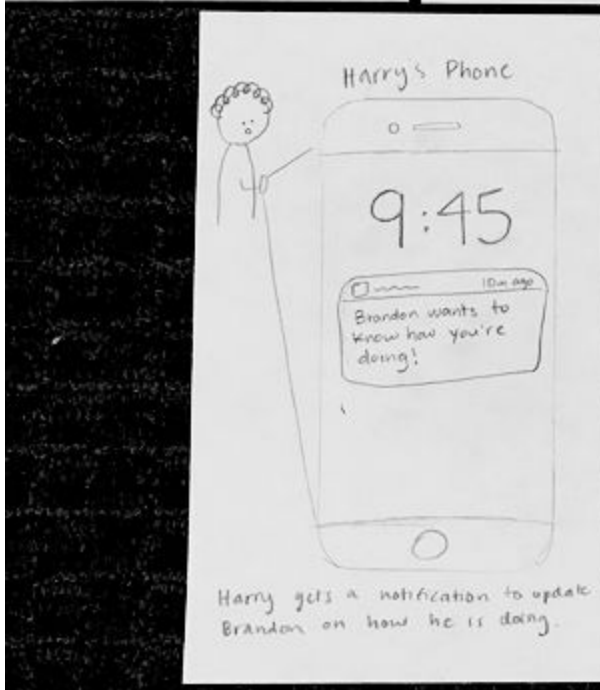 Harry's Phone
9:45
10m ago
Brandon wants to
know how you're
doing!
Harry gets a notification to update
Brandon on how he is doing.